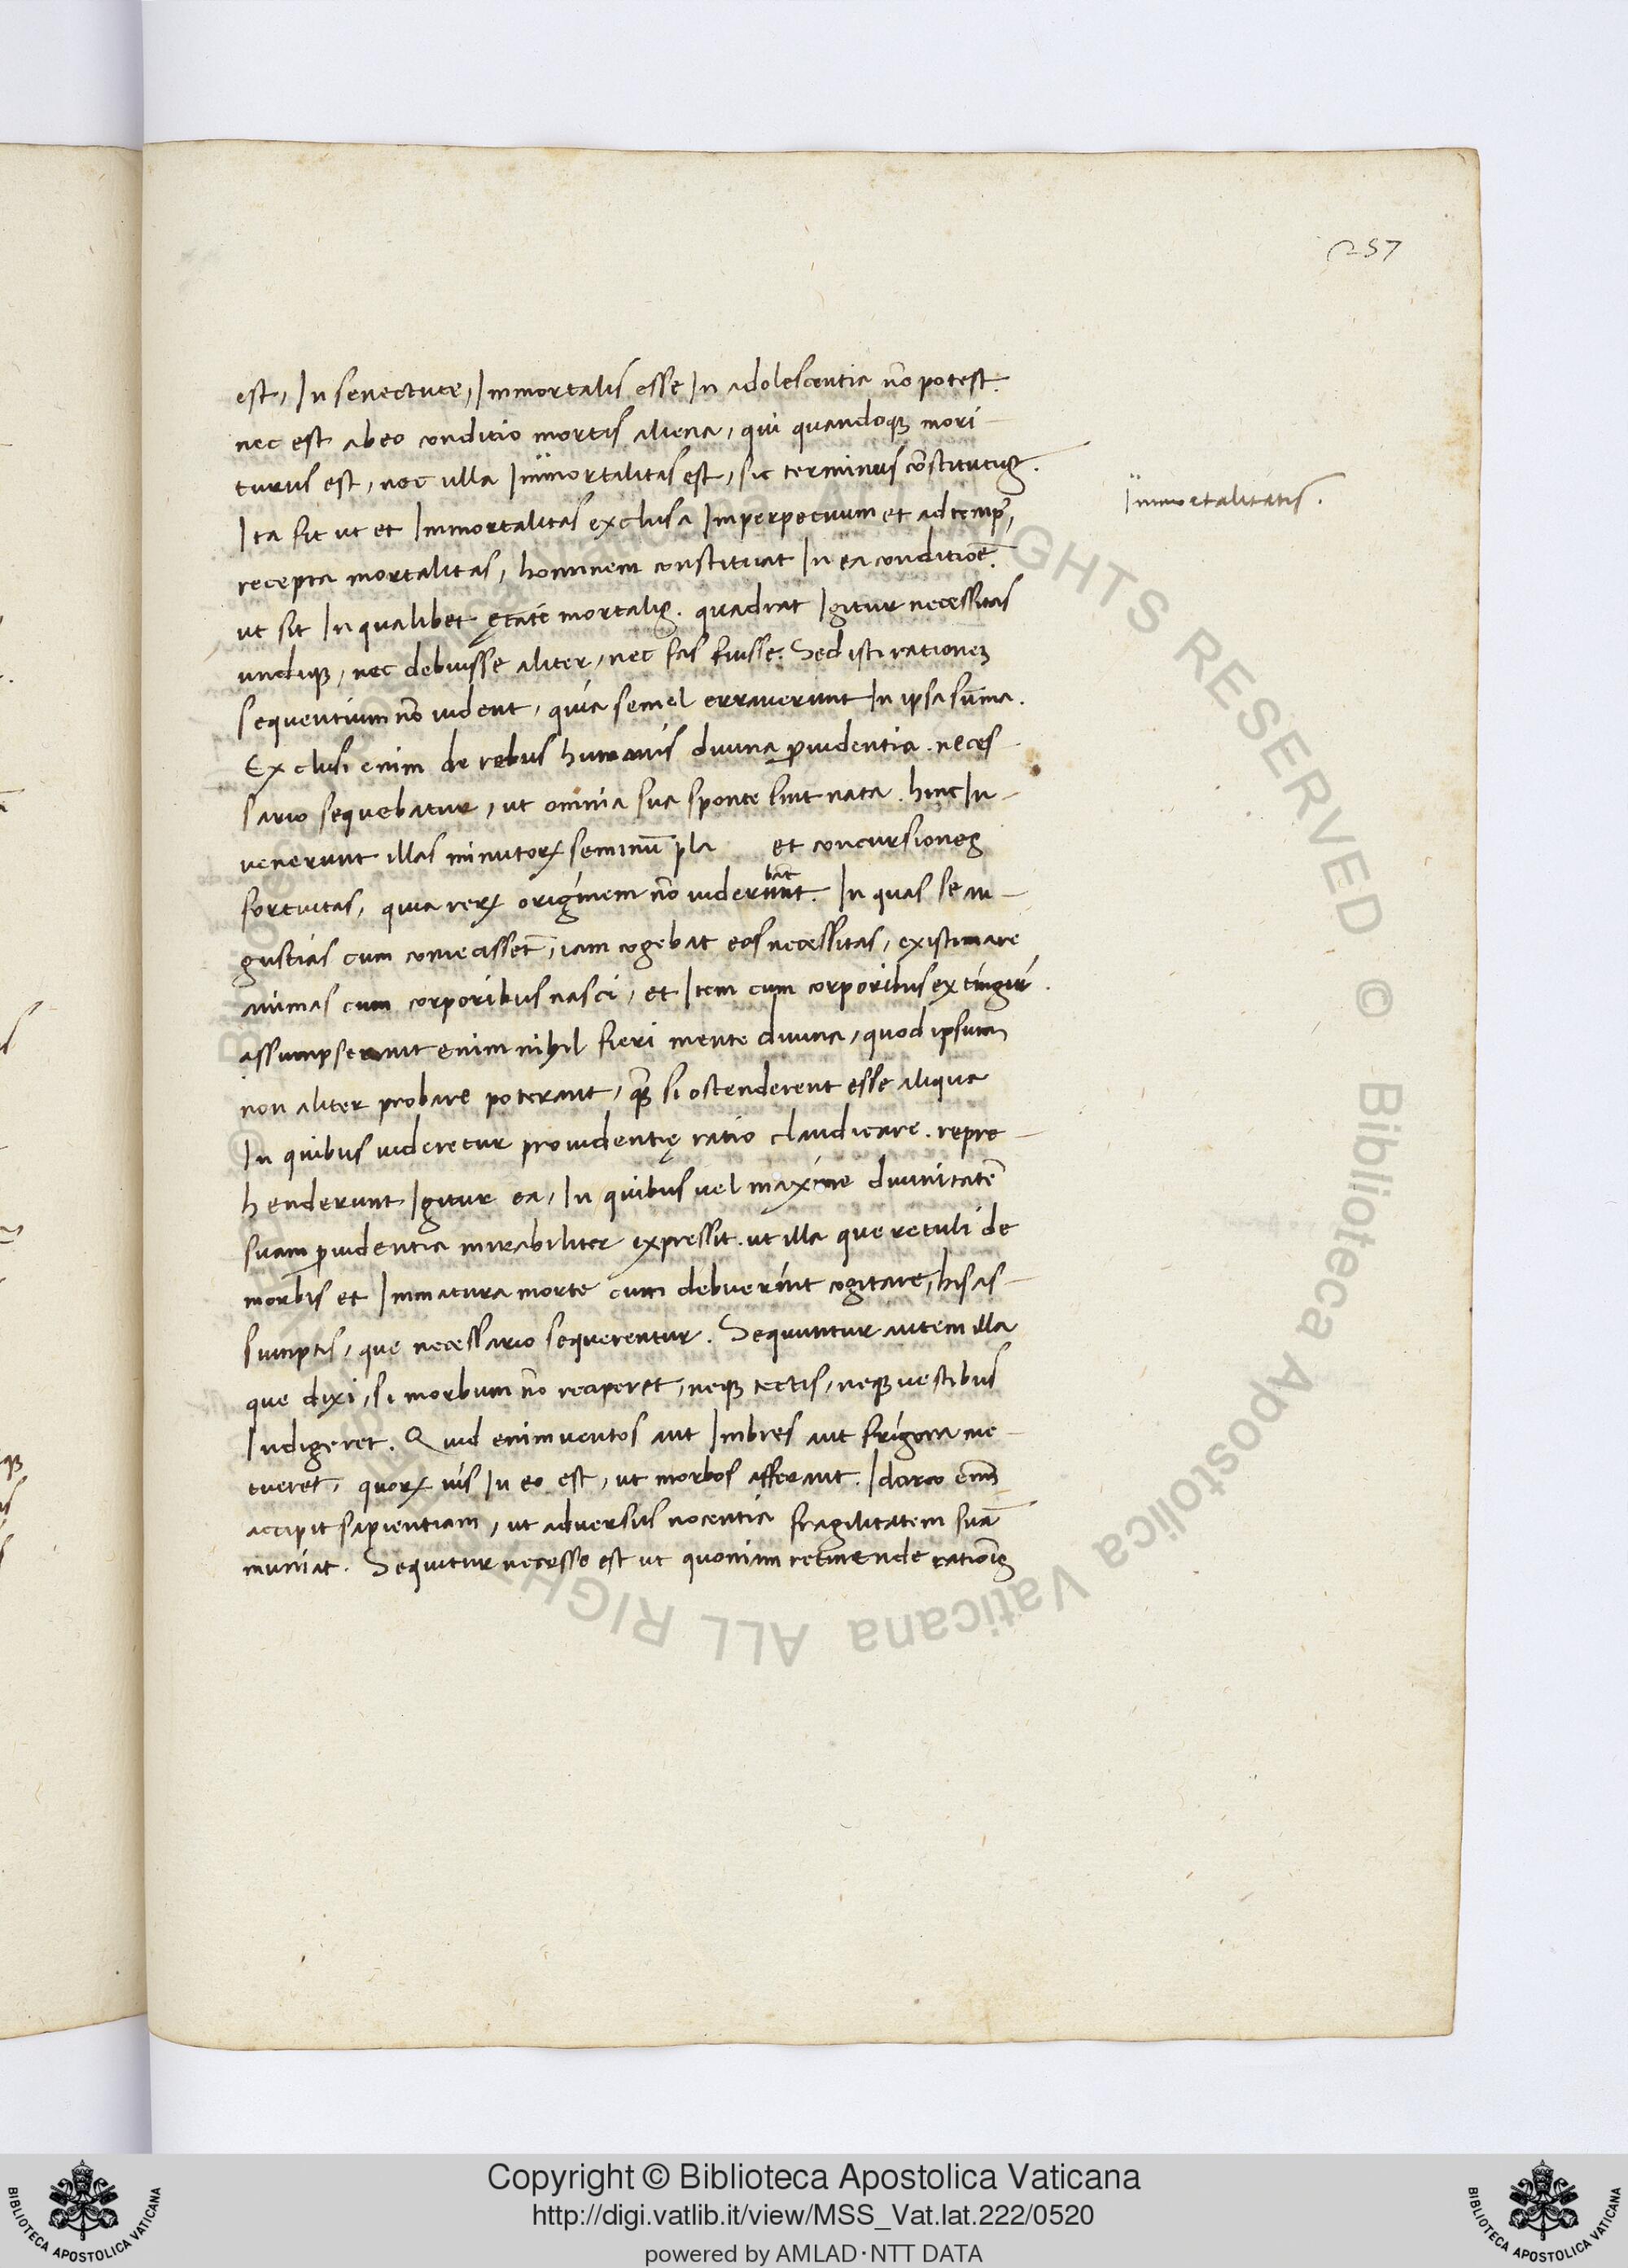 257
est, In senectute, Immortalis esse In adolescentia nõ potest.
nec est ab eo conditio mortis aliena, qui quandoqȝ mori-
turus est, nec ulla Immortalitas est, sic terminus cõstitutus.
Immortalitatis.
Ita fit ut et Immortalitas exclusa Imperpetuum et ad temp9,
recepta mortalitas, hominem constituat In ea conditiõe.
ut sit In qualibet ętate mortalis. quadrat Igitur necessitas
undiqȝ, nec debuisse aliter, nec fas fuisse. Sed isti rationem
sequentium nõ uident, quia semel errauerunt In ipsa sũma.
Exclusa enim de rebus humanis diuina ꝓuidentia. neces-
sario sequebatur, ut omnia sua sponte sint nata. hinc In-
uenerunt illas minutoꝝ seminũ pla et concursiones
fortuitas, quia reruꝝ originem nõ uiderunt. In quas se an-
bãt
gustias cum coniecissent, iam cogebat eos necessitas, existimare
animas cum corporibus nasci, et Item cum corporibus extingui.
assumpserant enim nihil fieri mente diuina, quod ipsum
non aliter probare poterant, qȝ̃ si ostenderent esse aliqua
In quibus uideretur prouidentię ratio claudicare. repre-
henderunt Igitur ea, In quibus uel maxime diuinitatẽ
suam ꝓuidentia mirabiliter expressit. ut illa que retuli de
morbis et Immatura morte cum debuerint cogitare, his as-
sumptis, que necessario sequerentur. Sequuntur autem illa
que dixi, si morbum nõ reciperet, neqȝ tectis, neqȝ uestibus
Indigeret. Quid enim uentos aut Imbres aut frigora me-
tueret, quoꝝ uis In eo est, ut morbos afferant. Idcirco enĩm
accipit sapientiam, ut aduersus nocentia fragilitatem suã
muniat. Sequitur necesse est ut quoniam retinende rationis
Copyright © Biblioteca Apostolica Vaticana
http://digi.vatlib.it/view/MSS_Vat.lat.222/0520
powered by AMLAD·NTT DATA